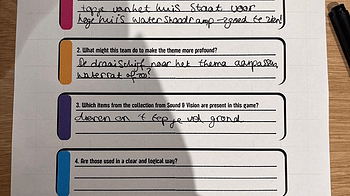 topje van het huis staat voor
hoge huis watersnoodramp - zonet te zien!
2. What might this team do to make the theme more profound?
De draaischijf naar het thema aanpassen,
waterrat ofzo?
3. Which items from the collection from Sound & Vision are present in this game?
dieren en 't tapje vd grond
4. Are those used in a clear and logical way?